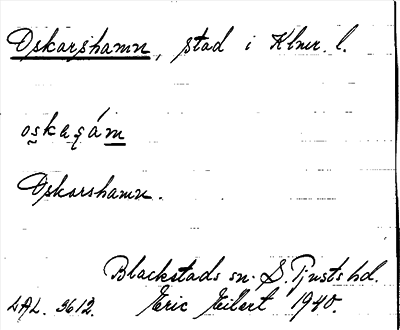 Oskarshamn, stad i Klmr. l.
oskaşám
Oskarshamn.
Blackstads sn. S. Tjusts hd.
LAL. 3612. Eric Eilert 1940.